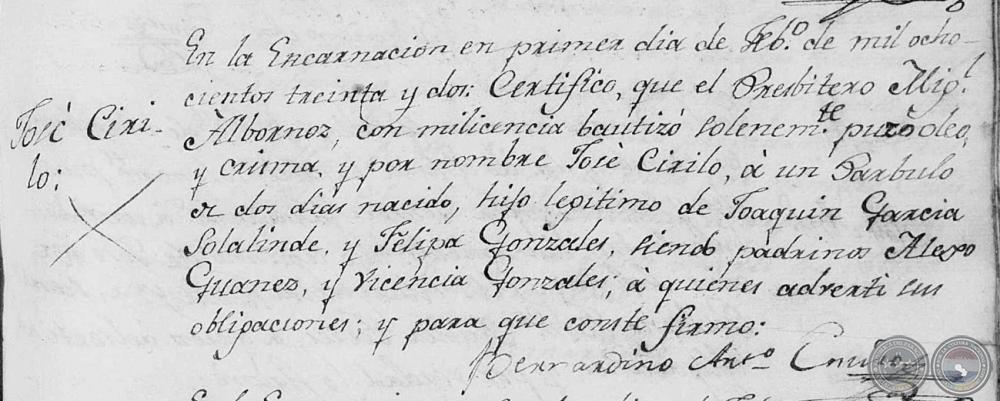 En la Encarnacion en primer dia de Feb.o de mil ocho-
cientos treinta y dos: Certifico, que el Presbitero Mig.l
Josè Ciri-
lo:
Albornoz, con milicencia bautizó solenem.te puzo oleo,
y crisma, y por nombre Josè Cirilo, à un Parbulo
de dos dias nacido, hijo legitimo de Joaquin Garcia
Solalinde, y Felipa Gonzales, siendo padrinos Alexo
Guanez, y Vicencia Gonzales; à quienes adverti sus
obligaciones; y para que conste firmo:
Bernardino Ant.o